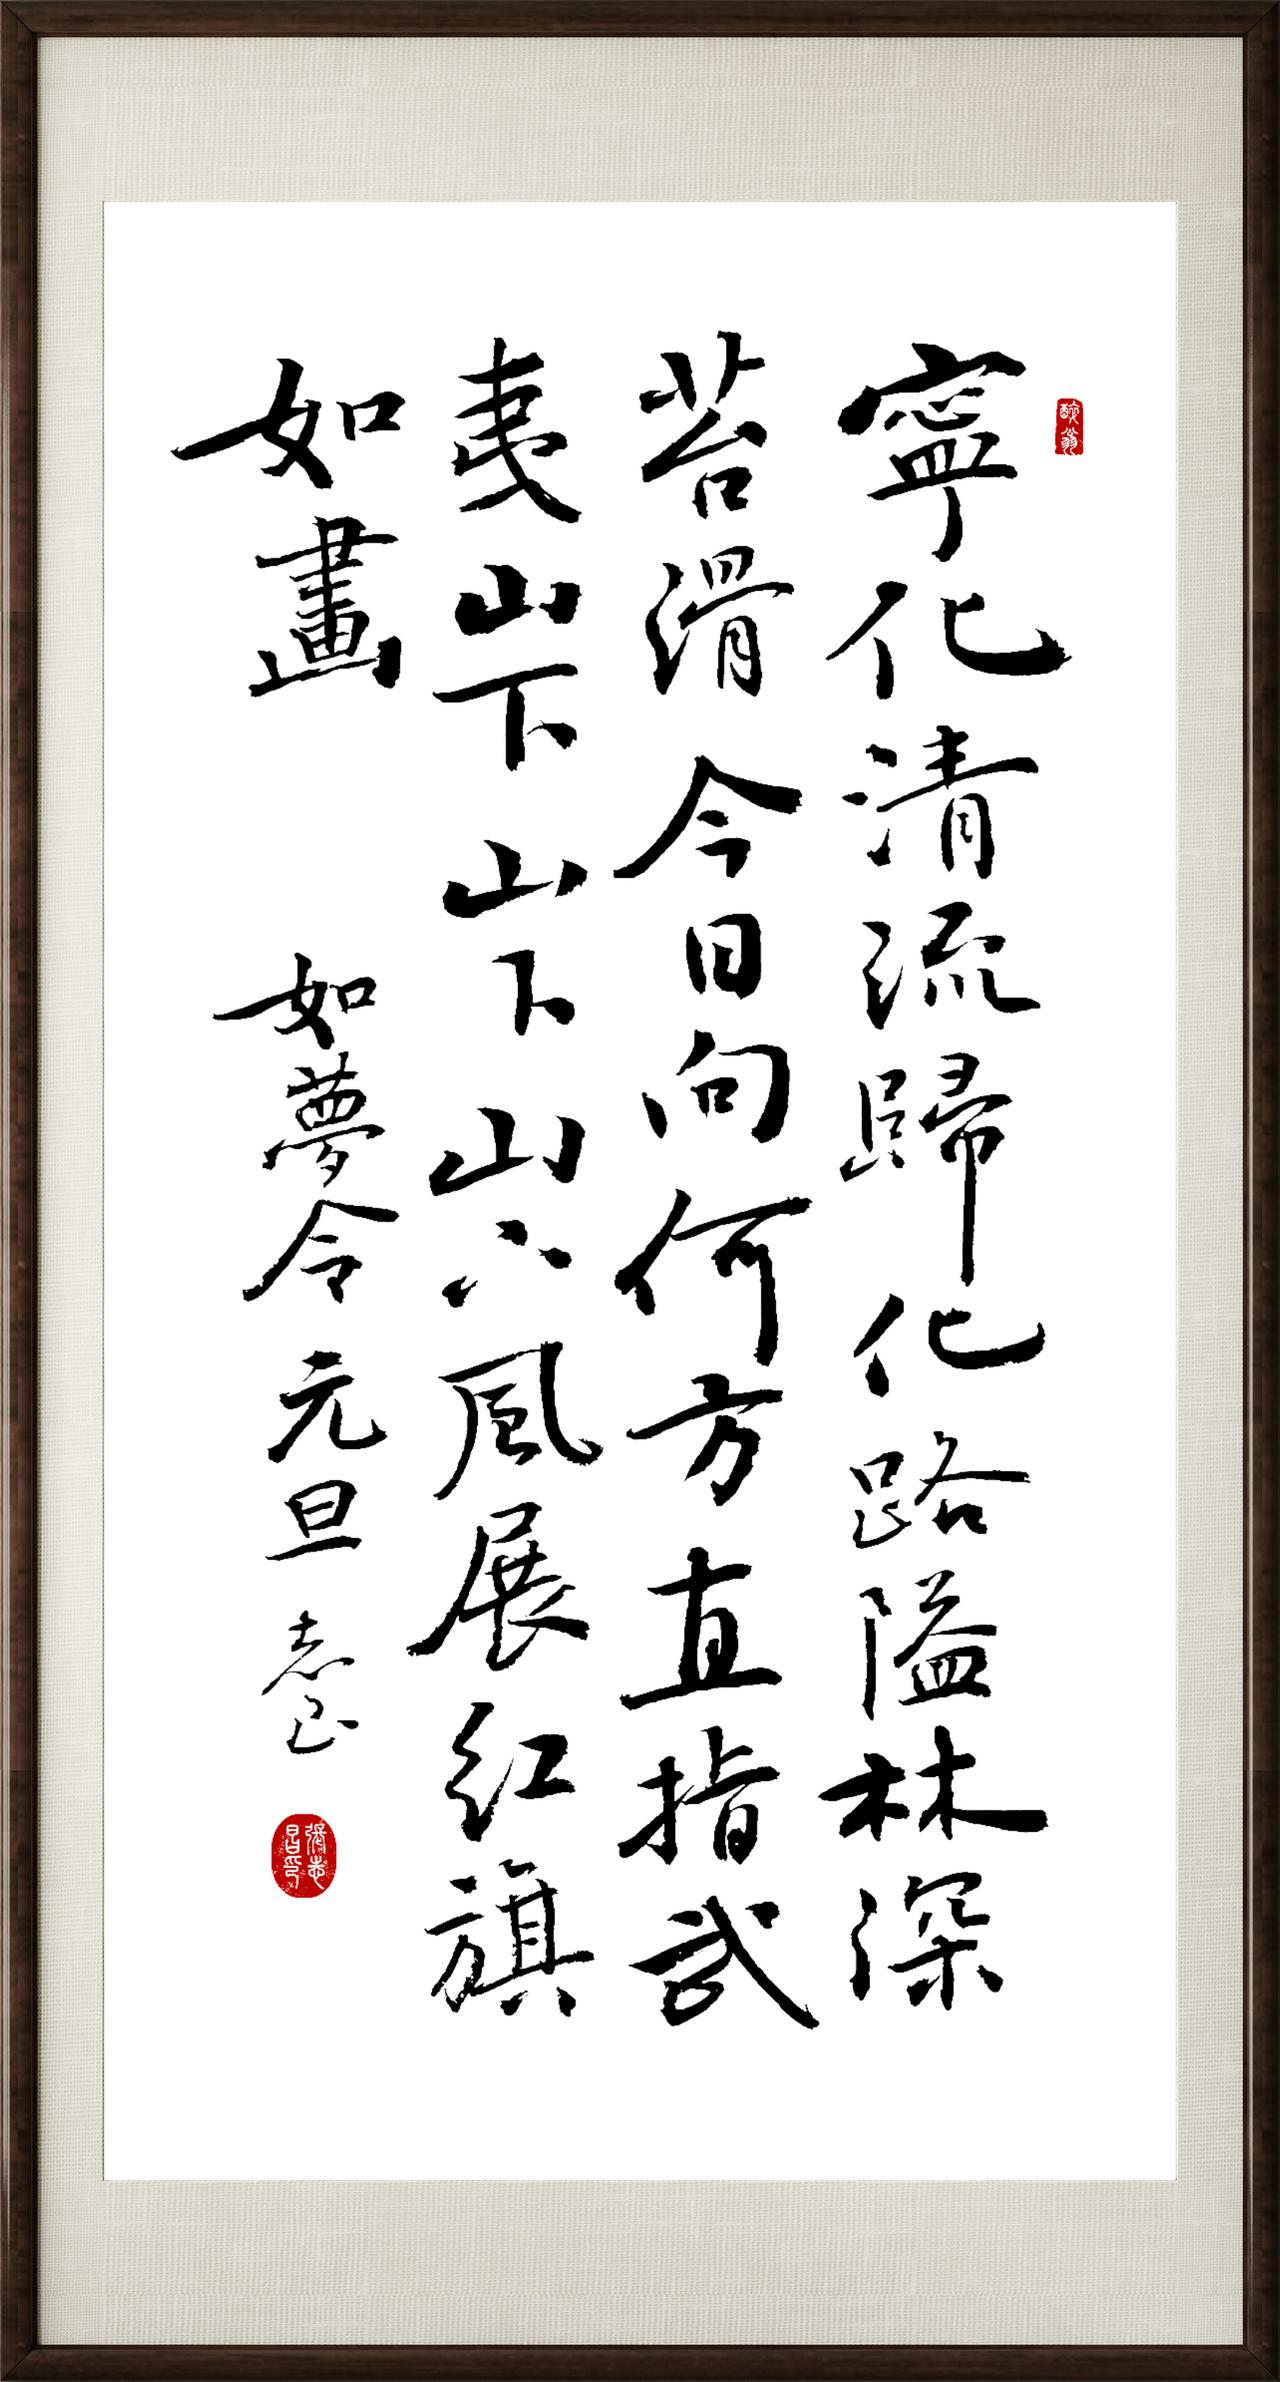 醉翁
寧化清流歸化路隘林深
苔滑今日向何方直指武
夷山下山下山下風展红旗
如畫 如夢令 元旦 志昌
張志昌印